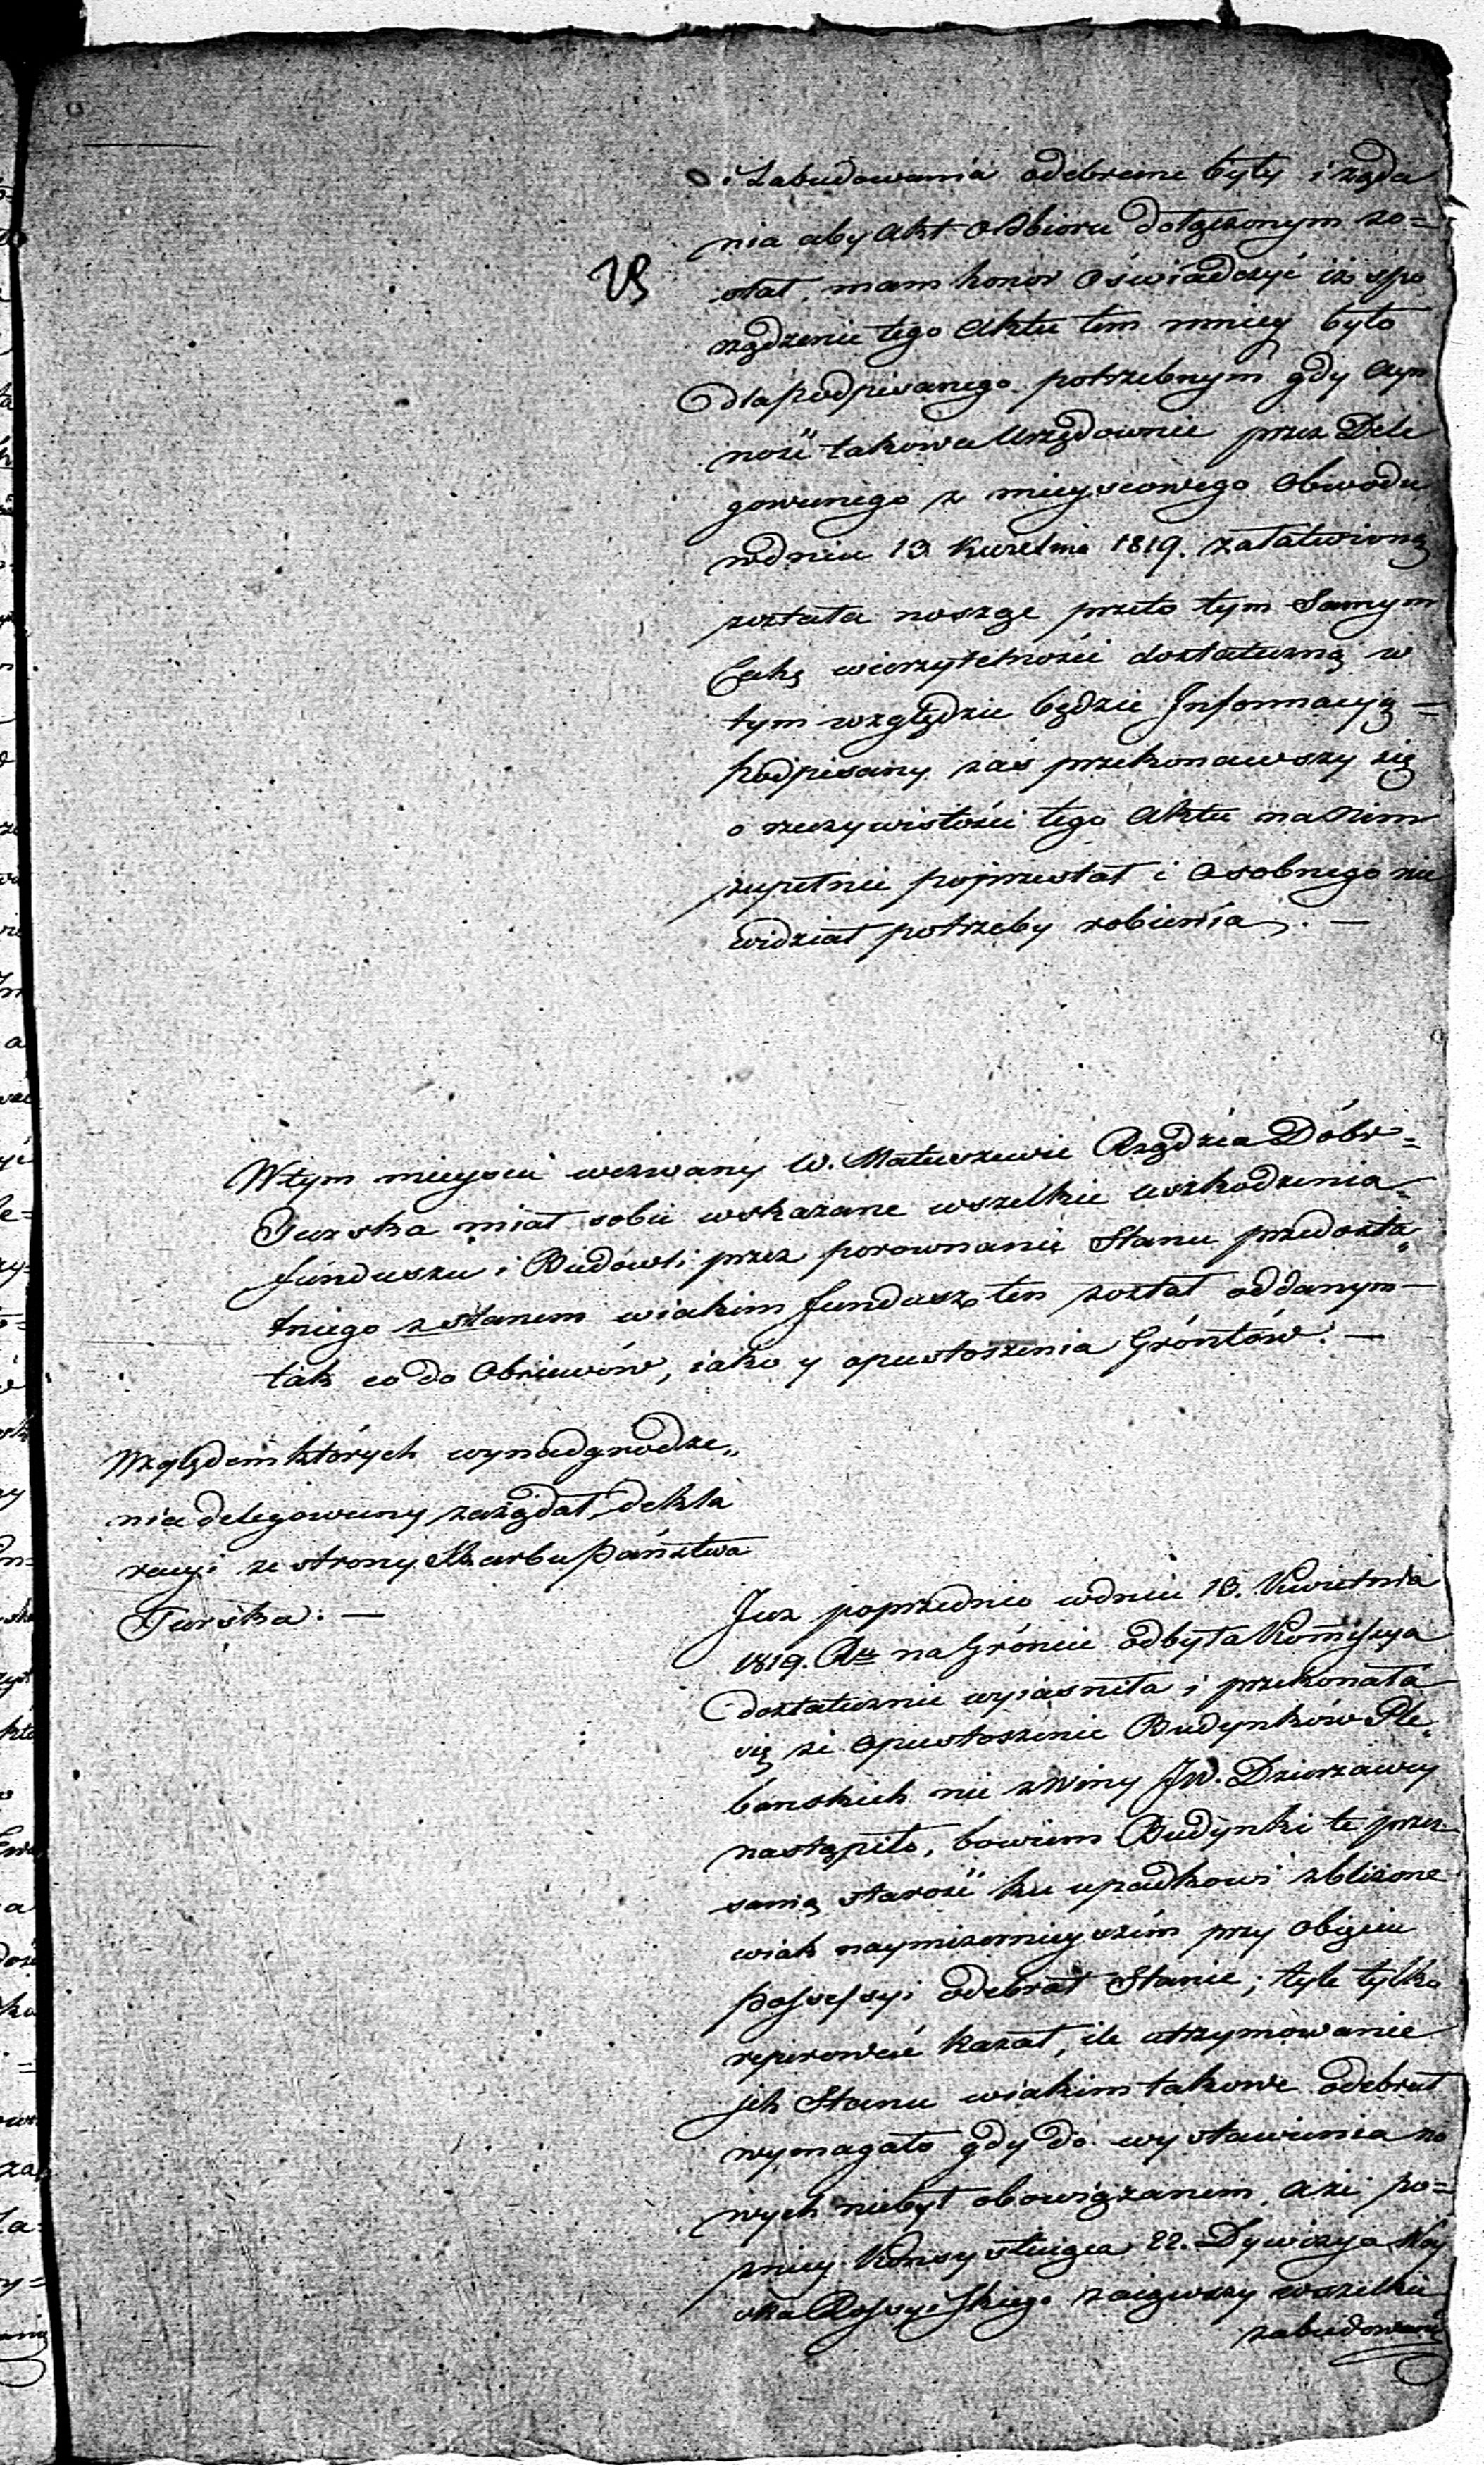 i Zabudowania odebrane były i żąda
nia aby akt odbioru dołączonym zo=
stał, mam honor oświadczyć iż spo
rządzenie tego aktu tem mniey było
dla podpisanego potrzebnym gdy czyn
ność takowa Urzędownie przez Dele
gowanego z mieyscowego Obwodu
wdniu 13 Kwietnia 1819. załatwioną
została noszące przeto tym Samym
Cechę wierzytelności dostateczną w
tym względzie będzie Informacyią =
podpisany zaś przekonawszy się
o rzeczywistości tego Aktu na nim
zupełnie poprzestał i Osobnego nie
widział potrzeby robienia. —
Wtym mieyscu wezwany W. Matuszewic Rządzca Dóbr=
Turska miał sobie wskazane wszelkie uszkodzenia=
funduszu i Budowli przez porownanie Stanu przedosta„
tniego z stanem wiakim fundusz ten został oddanym—
tak co do Obsiewów, iako y opustoszenia Gróntów. —
Względem których wynadgrodze„
nia delegowany zażądał dekla
racyi ze strony Skarbu państwa
Turska. —
Już poprzednio wdniu 13. Kwietnia
1819. Rku na Gróncie odbyta Kommissya
dostatecznie wyiasniła i przekonała
się że opustoszenie Budynków Ple„
banskich nie zwiny JW. Dzierzawcy
nastąpiło, bowiem Budynki te przez
samą starość ku upadkowi zbliżone
wiak naymizernieyszim przy obięciu
possessyi odebrał Stanie; tyle tylko
reperować kazał, ile utrzymowanie
ich Stanu wiakim takowe odebrał
wymagało gdy do wystawienia no
wych niebył obowiązanem, a że po=
zniey Konsystuiąca 22. Dywizya Woy
ska Rossyiskiego zaiąwszy wszelkie
zabudowania